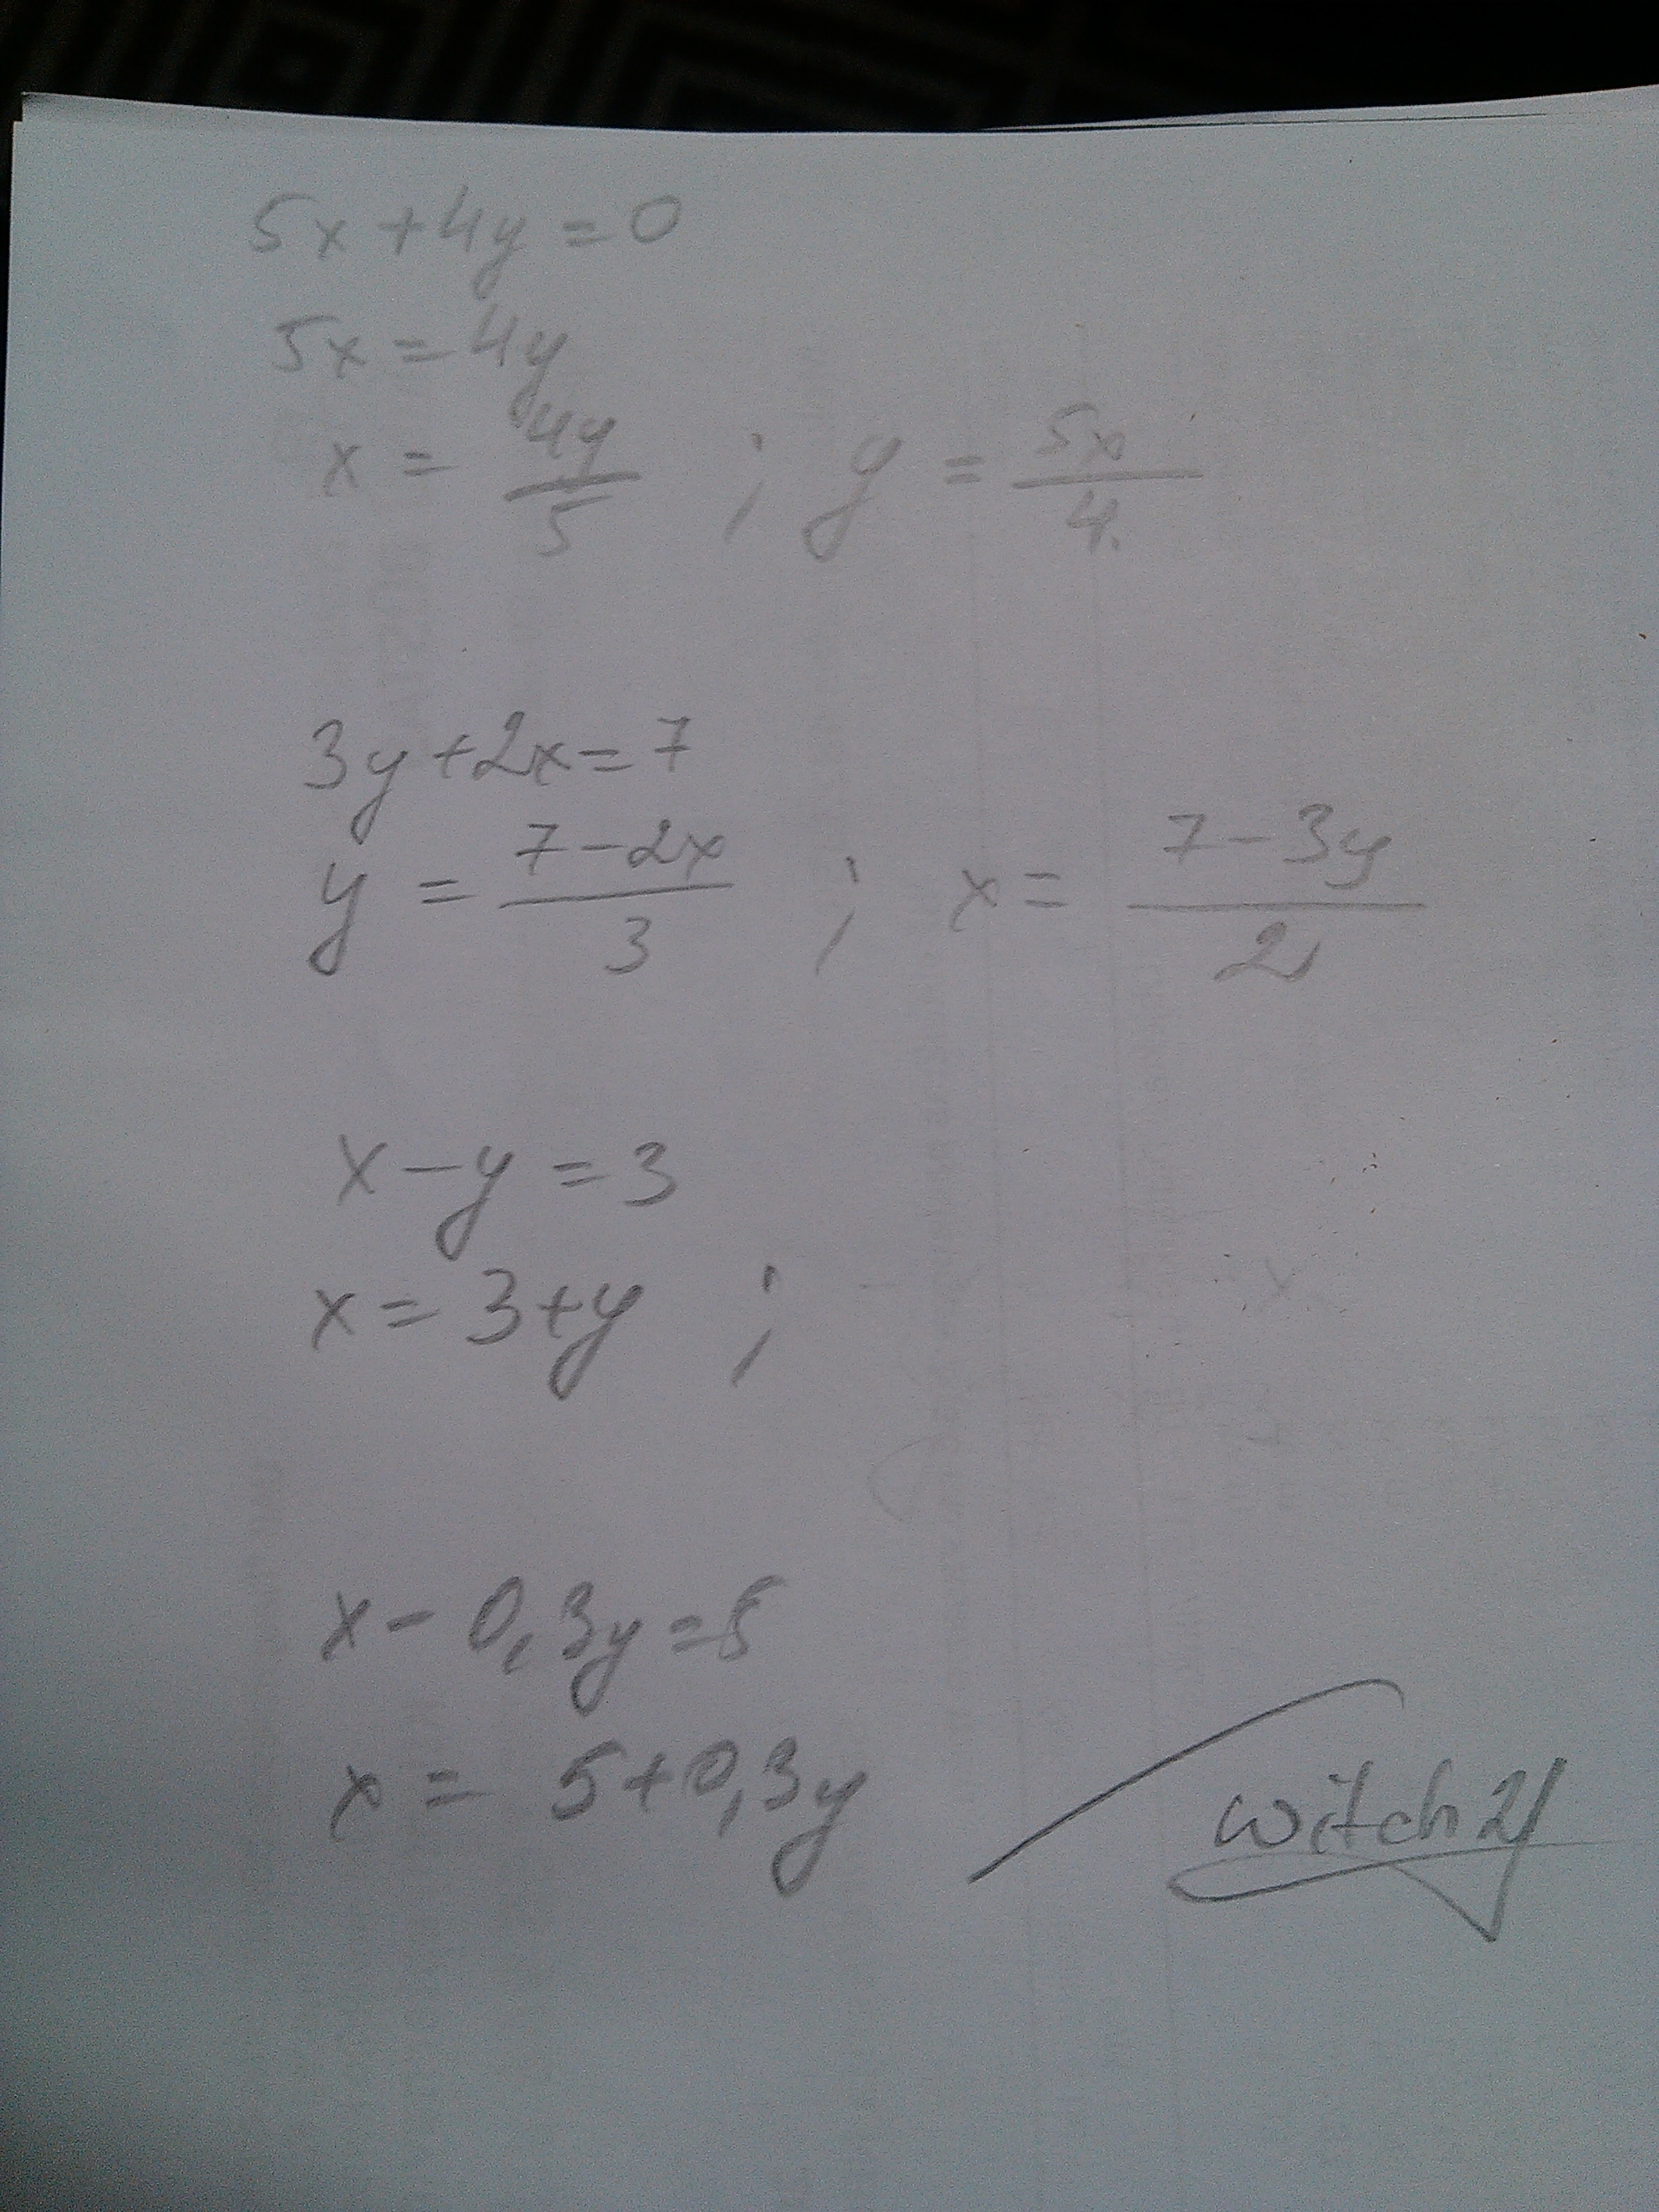 5x+4y=0
5x=4y
x = 4y/5 ; y = 5x/4
3y+2x=7
y = 7-2x/3 ; x = 7-3y/2
x-y=3
x=3+y ;
x-0,3y=5
x = 5+0,3y
witch21